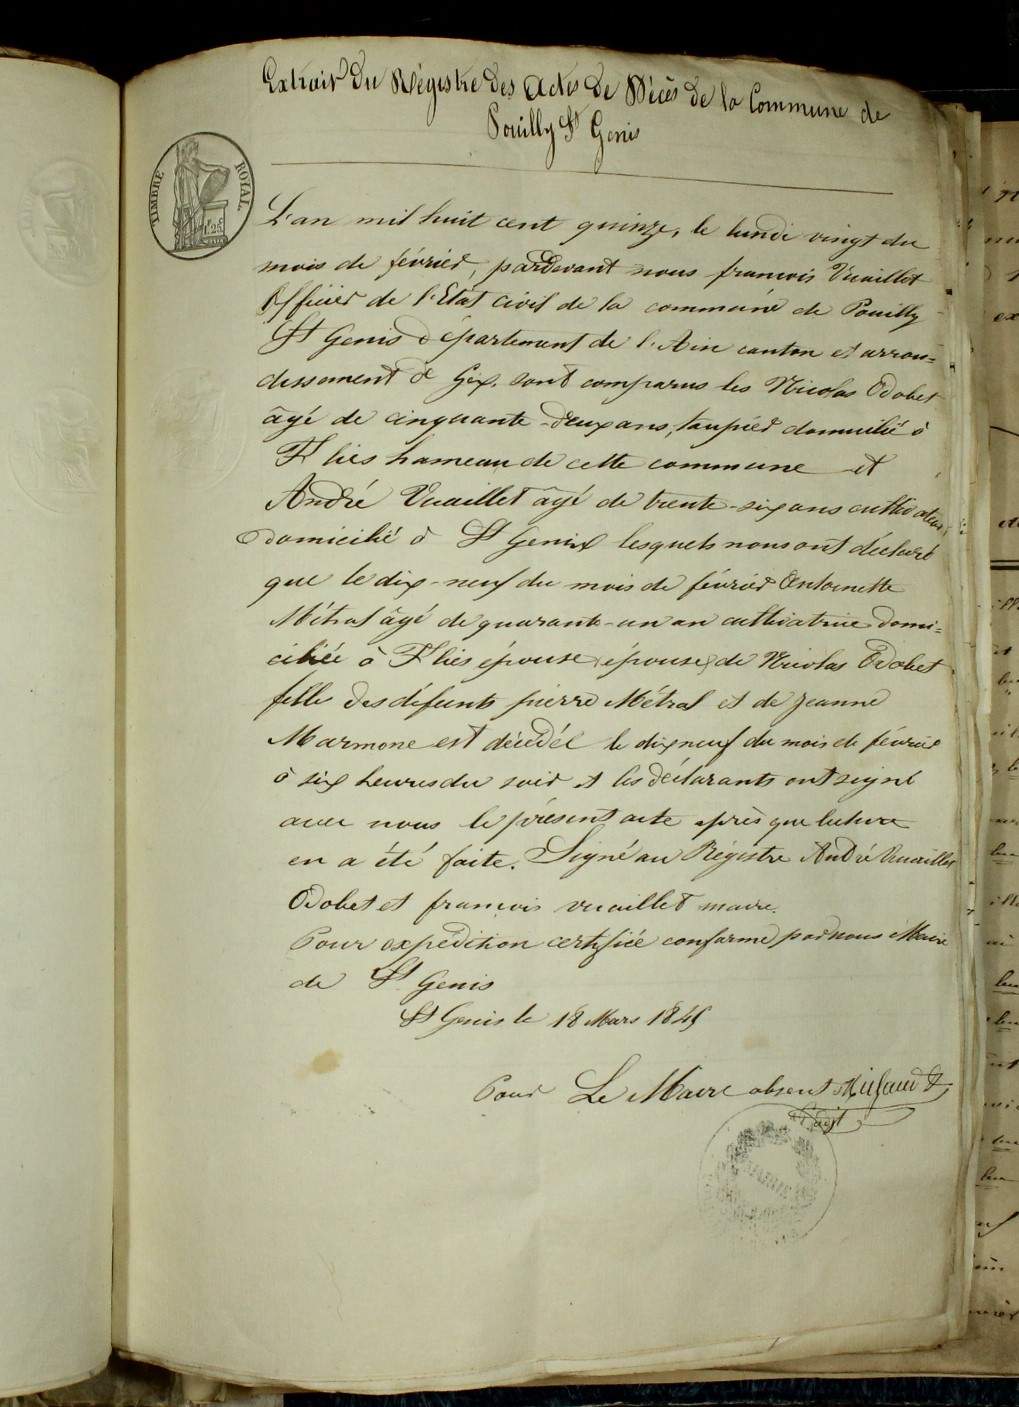 Extrait Du Régistre Des Actes De Décès De la Commune de
Pouilly St Genis
TIMBRE ROYAL
1f 25c
L'an mil huit cent quinze, le lundi vingt du
mois de février, pardevant nous francois Vuaillet
Officier de l'Etat civil de la commune de Pouilly
St Genis département de l'Ain canton et arron=
dissement de Gex. sont comparus les Nicolas Odobet
âgé de cinquante-deux ans, domicilié à
hameau de cette commune et
André Vuaillet âgé de trente-six ans cultivateur,
domicilié à St Genix lesquels nous ont déclaré
que le dix-neuf du mois de février Antoinette
Métral âgé de quarante-un an cultivatrice domi=
ciliée à épouse épouse de Nicolas Odobet
fille des défunts pierre Métral et de Jeanne
Marmone est décédée le dix neuf du mois de février
à six heures du soir et les déclarants ont signé
avec nous le présent acte après que lecture
en a été faite. Signé au Régistre André Vuaillet
Odobet et francois vuaillet maire.
Pour expédition certifiée conforme par nous Maire
de St Genis
St Genis le 18 Mars 1845
Pour Le Maire absent
adjt
MAIRIE